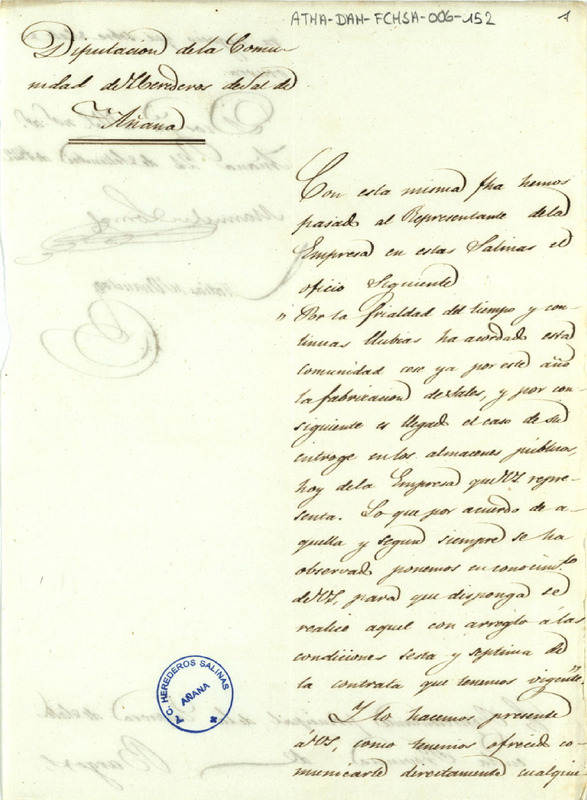 ATHA-DAH-FCHSA-006-152
1
Diputacion de la Comu-
nidad de Herederos de Sal de
Añana
Con esta misma fha hemos
pasado al Representante de la
Empresa en estas Salinas el
oficio Siguiente
" Por la frialdad del tiempo y con-
tinuas llubias ha acordado esta
comunidad cese ya por este año
la fabricacion de Sales, y por con-
siguiente es llegado el caso de su
entroge en los almacenes públicos,
hoy de la Empresa que VS repre-
senta. Lo que por acuerdo de a-
quella y segun siempre se ha
observado ponemos en conocimto
de VS, para que disponga se
realice aquel con arreglo á las
condiciones sesta y septima de
la contrata que tenemos vigente"
Y lo hacemos presente
á VS, como tenemos ofrecido co-
municarle directamente cualqui-
T. C. HEREDEROS SALINAS
AÑANA